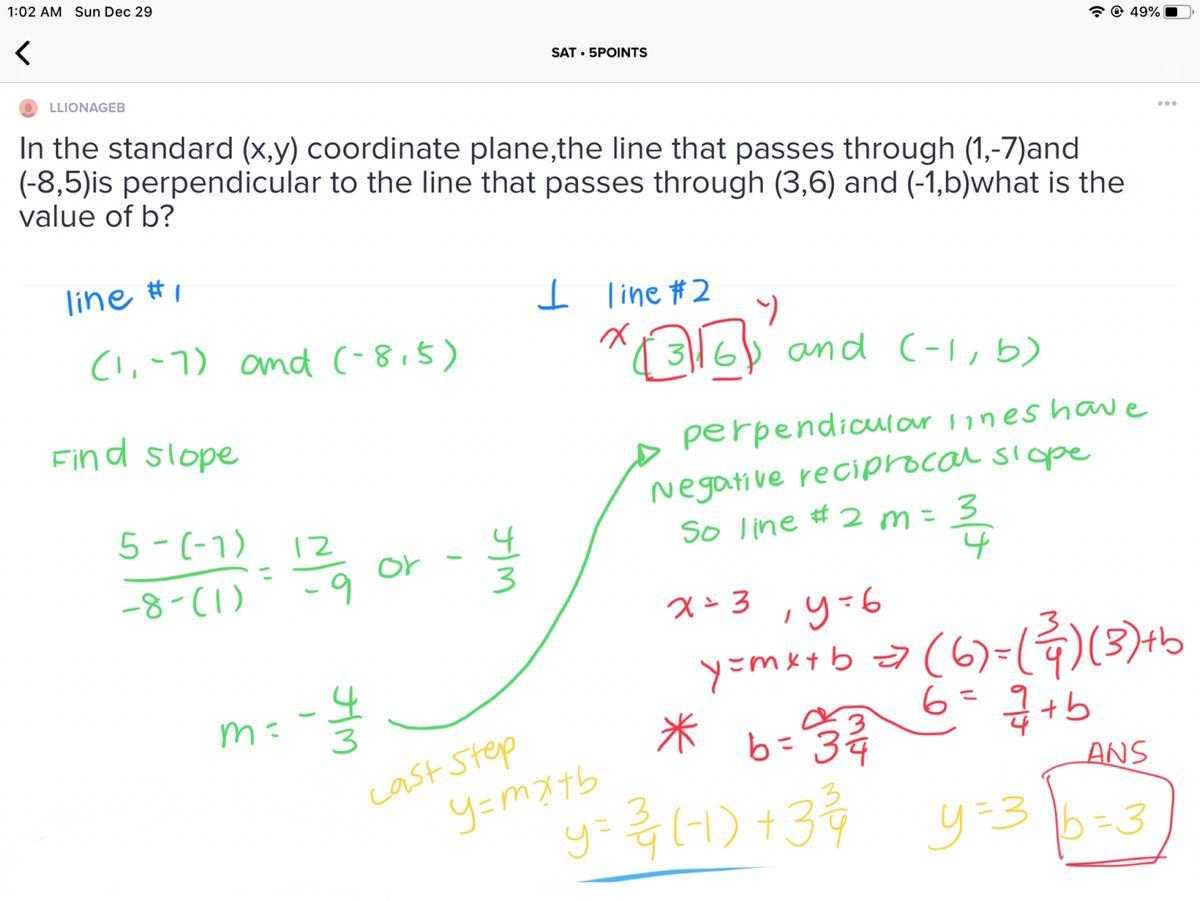 1:02 AM Sun Dec 29
49%
SAT • 5POINTS
LLIONAGEB
In the standard (x,y) coordinate plane,the line that passes through (1,-7)and
(-8,5)is perpendicular to the line that passes through (3,6) and (-1,b)what is the
value of b?
line #1
⊥ line #2
x y
(1,-7) and (-8,5)
(3,6) and (-1,b)
Find slope
perpendicular lines have
Negative reciprocal slope
so line #2 m = 3/4
5-(-7)/-8-(1) = 12/-9 or -4/3
x=3, y=6
y=mx+b ⇒ (6)=(3/4)(3)+b
6 = 9/4 +b
m = -4/3
* b = 3 3/4
Last step
y=mx+b
y=3/4(-1)+3 3/4
y=3
ANS
b=3